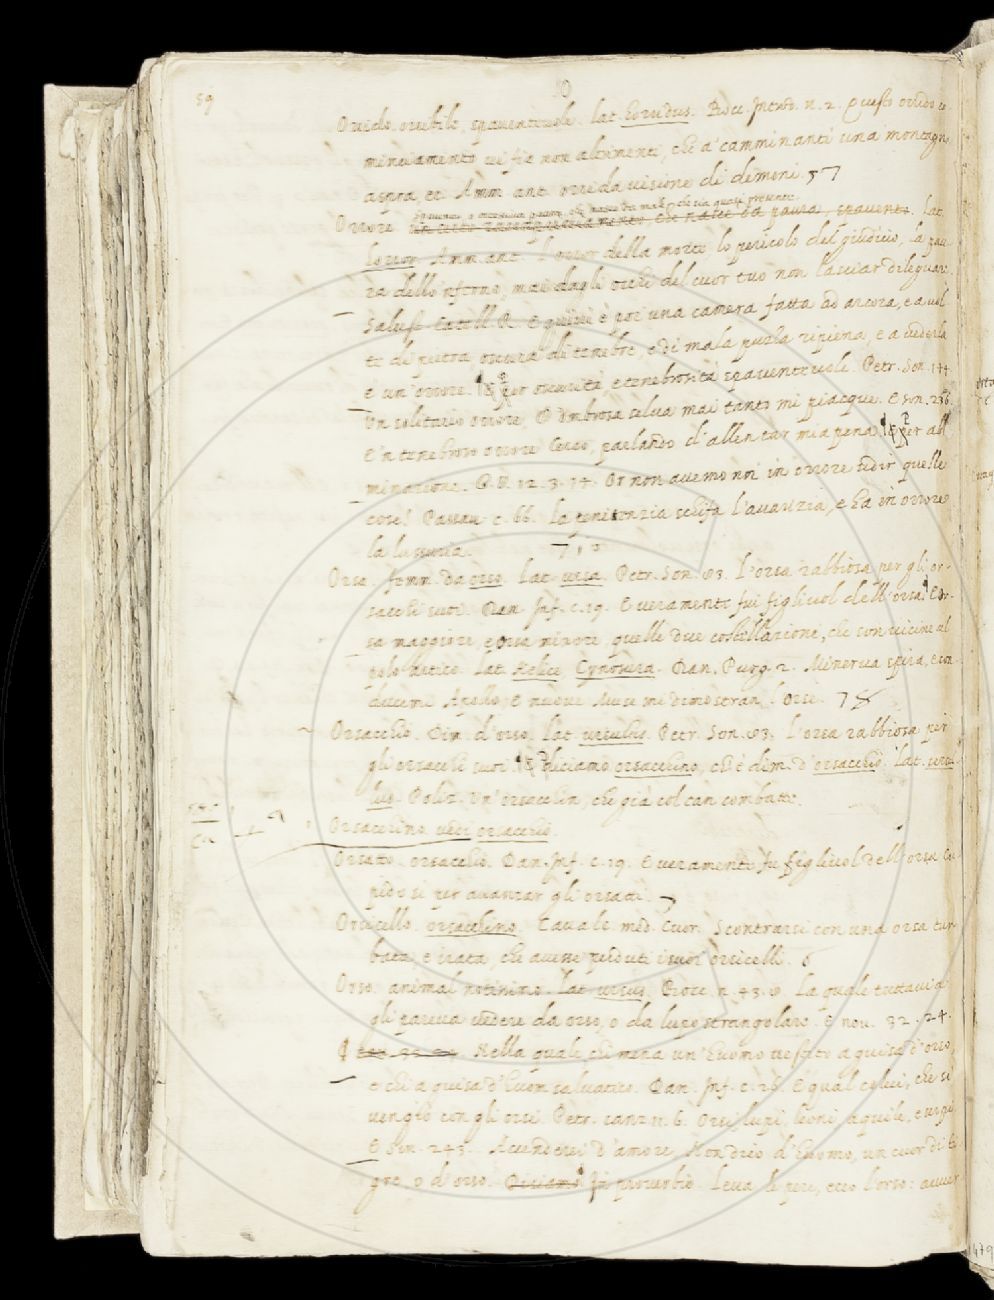 59
O
Orrido. orribile, spaventevole. lat. horridus. Bocc. Introd. n. 2. Questo orrido co
minciamento vi fie non altrimenti, che a' camminanti una montagna
aspra, et Amm. ant. orrida visione di dimoni. 57
Orrore che nasce da paura, spavento. lat.
horror. Amm. ant. l'orror della morte, lo pericolo del giudicio, la pau
ra dello 'nferno, mai dagli occhi del cuor tuo non lasciar dileguare.
Salust. Catell. R. E quivi è poi una camera fatta ad ancora, e a vol
te di pietra oscura di tenebre, e di mala puzza ripiena, e a vederla
è un orrore. per oscurità, e tenebrosità spaventevole. Petr. Son. 144.
Un solitario orrore, D'ombrosa selva mai tanto mi piacque. E son. 236.
E 'n tenebroso orrore Cerco, parlando d'allentar mia pena. per abbo
minazione. G. V. 12. 3. 14. Or non avemo noi in orrore udir quelle
cose! Passav. c. 66. La penitenzia schifa l'avarizia, e ha in orrore
la lussuria.
Orsa. femm. da orso. Lat. ursa. Petr. Son. 83. L'orsa rabbiosa per gli or-
sacchi suoi. Dan. Inf. c. 19. E veramente fui figliuol dell'orsa. E or-
sa maggiore, e orsa minore, quelle due costellazione, che son vicine al
polo artico. lat. Helice, Cynosura. Dan. Purg. 2. Minerva spira, e con-
ducemi Apollo, E nuove Muse mi dimostran l'Orse. 78
Orsacchio. Dim. d'orso. lat. ursulus. Petr. Son. 83. L'orsa rabbiosa per
gli orsacchi suoi. diciamo orsacchino, ch'è dim. d'orsacchio. lat. ursu
lus. Poliz. Un'orsacchin, che già col can combatte.
Orsacchino. vedi orsacchio.
Orsatto. orsacchio. Dan. Inf. c. 19. E veramente fu figliuol dell'orsa Cu
pido sì per avanzar gli orsatti. 7
Orsicello. orsacchino. Cavalc. med. cuor. Scontrarsi con una orsa tur
bata, e irata, che avesse perduti i suoi orsicelli. 6
Orso. animal notissimo. Lat. ursus. Bocc. n. 43. 8. La quale tuttavia
gli pareva vedere da orso, o da lupo strangolare. E nov. 32. 24.
Nella quale chi mena un'huomo vestito a guisa d'orso,
e chi a guisa d'huom salvatico. Dan. Inf. c. 26. E qual colui, che si
vengiò con gli orsi. Petr. canz. 11. 6. Orsi, lupi, leoni, aquile, e serpi
E son. 243. Accendersi d'amore, Non dico d'huomo, un cuor di ti
gre, o d'orso. Diciamo in proverbio. Leva le pere, ecco l'orso: